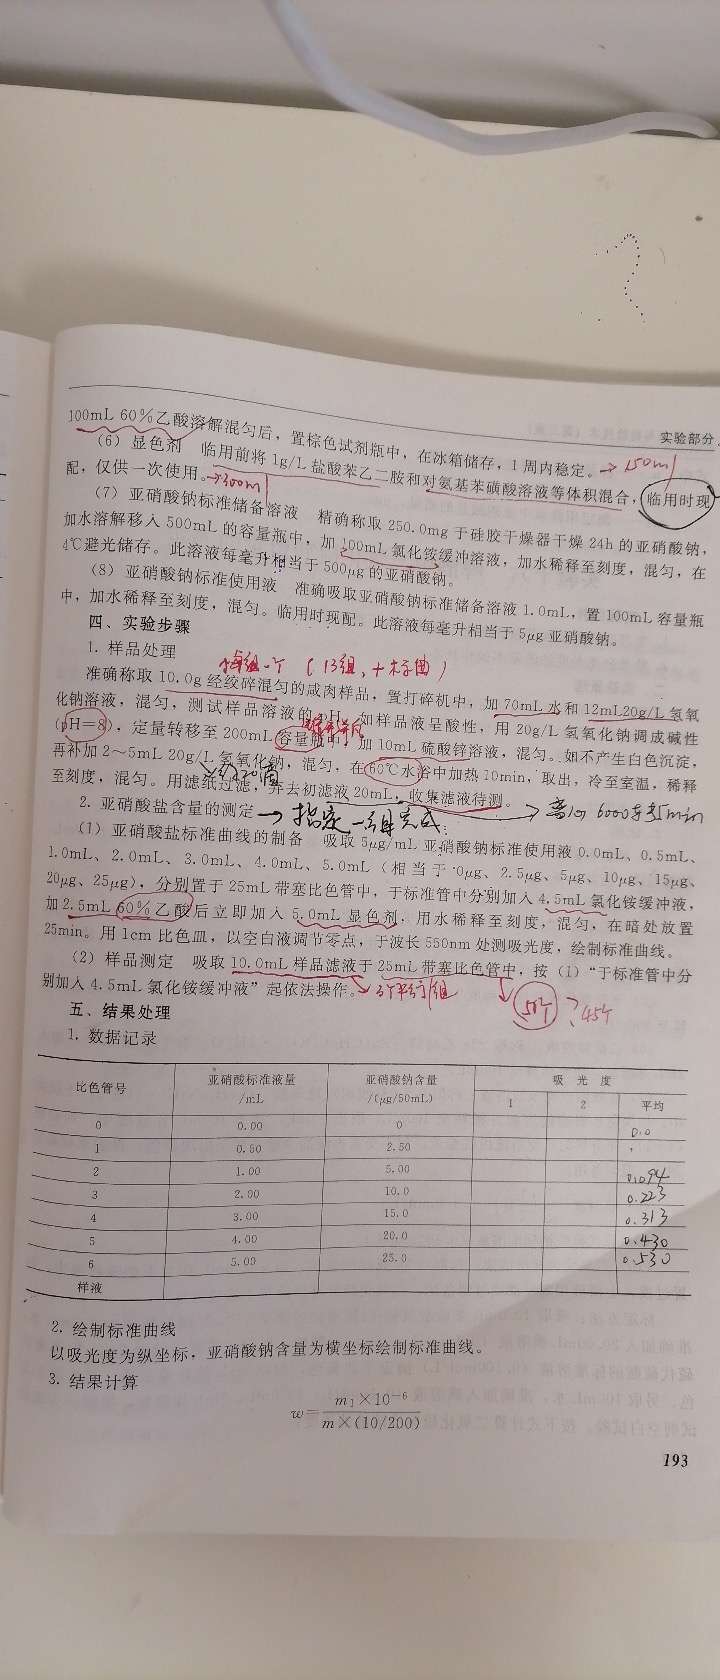 实验部分
100mL 60%乙酸溶解混匀后，置棕色试剂瓶中，在冰箱储存，1周内稳定。→150ml
(6) 显色剂 临用前将1g/L盐酸苯乙二胺和对氨基苯磺酸溶液等体积混合，临用时现
配，仅供一次使用。→300ml
(7) 亚硝酸钠标准储备溶液 精确称取250.0mg于硅胶干燥器干燥24h的亚硝酸钠，
加水溶解移入500mL的容量瓶中，加100mL氯化铵缓冲溶液，加水稀释至刻度，混匀，在
4℃避光储存。此溶液每毫升相当于500μg的亚硝酸钠。
(8) 亚硝酸钠标准使用液 准确吸取亚硝酸钠标准储备溶液1.0mL，置100mL容量瓶
中，加水稀释至刻度，混匀。临用时现配。此溶液每毫升相当于5μg亚硝酸钠。
四、实验步骤
1. 样品处理
每组一个 (13组，+标曲)
准确称取10.0g经绞碎混匀的咸肉样品，置打碎机中，加70mL水和12mL20g/L氢氧
化钠溶液，混匀，测试样品溶液的pH。如样品液呈酸性，用20g/L氢氧化钠调成碱性
(pH=8)，定量转移至200mL容量瓶中，加10mL硫酸锌溶液，混匀。如不产生白色沉淀，
再补加2～5mL 20g/L氢氧化钠，混匀，在60℃水浴中加热10min，取出，冷至室温，稀释
至刻度，混匀。用滤纸过滤，弃去初滤液20mL，收集滤液待测。
2. 亚硝酸盐含量的测定→指定一组完成 → 离心6000转5min
(1) 亚硝酸盐标准曲线的制备 吸取5μg/mL亚硝酸钠标准使用液0.0mL、0.5mL、
1.0mL、2.0mL、3.0mL、4.0mL、5.0mL（相当于0μg、2.5μg、5μg、10μg、15μg、
20μg、25μg），分别置于25mL带塞比色管中，于标准管中分别加入4.5mL氯化铵缓冲液，
加2.5mL 60%乙酸后立即加入5.0mL显色剂，用水稀释至刻度，混匀，在暗处放置
25min。用1cm比色皿，以空白液调节零点，于波长550nm处测吸光度，绘制标准曲线。
(2) 样品测定 吸取10.0mL样品滤液于25mL带塞比色管中，按(1)“于标准管中分
别加入4.5mL氯化铵缓冲液”起依法操作。 3个平行/组 50个？45个
五、结果处理
1. 数据记录
比色管号 亚硝酸标准液量/mL 亚硝酸钠含量/(μg/50mL) 吸光度 1 2 平均
0 0.00 0 0.0
1 0.50 2.50
2 1.00 5.00 0.094
3 2.00 10.0 0.223
4 3.00 15.0 0.313
5 4.00 20.0 0.430
6 5.00 25.0 0.530
样液
2. 绘制标准曲线
以吸光度为纵坐标，亚硝酸钠含量为横坐标绘制标准曲线。
3. 结果计算
w=m₁×10⁻⁶/m×(10/200)
193